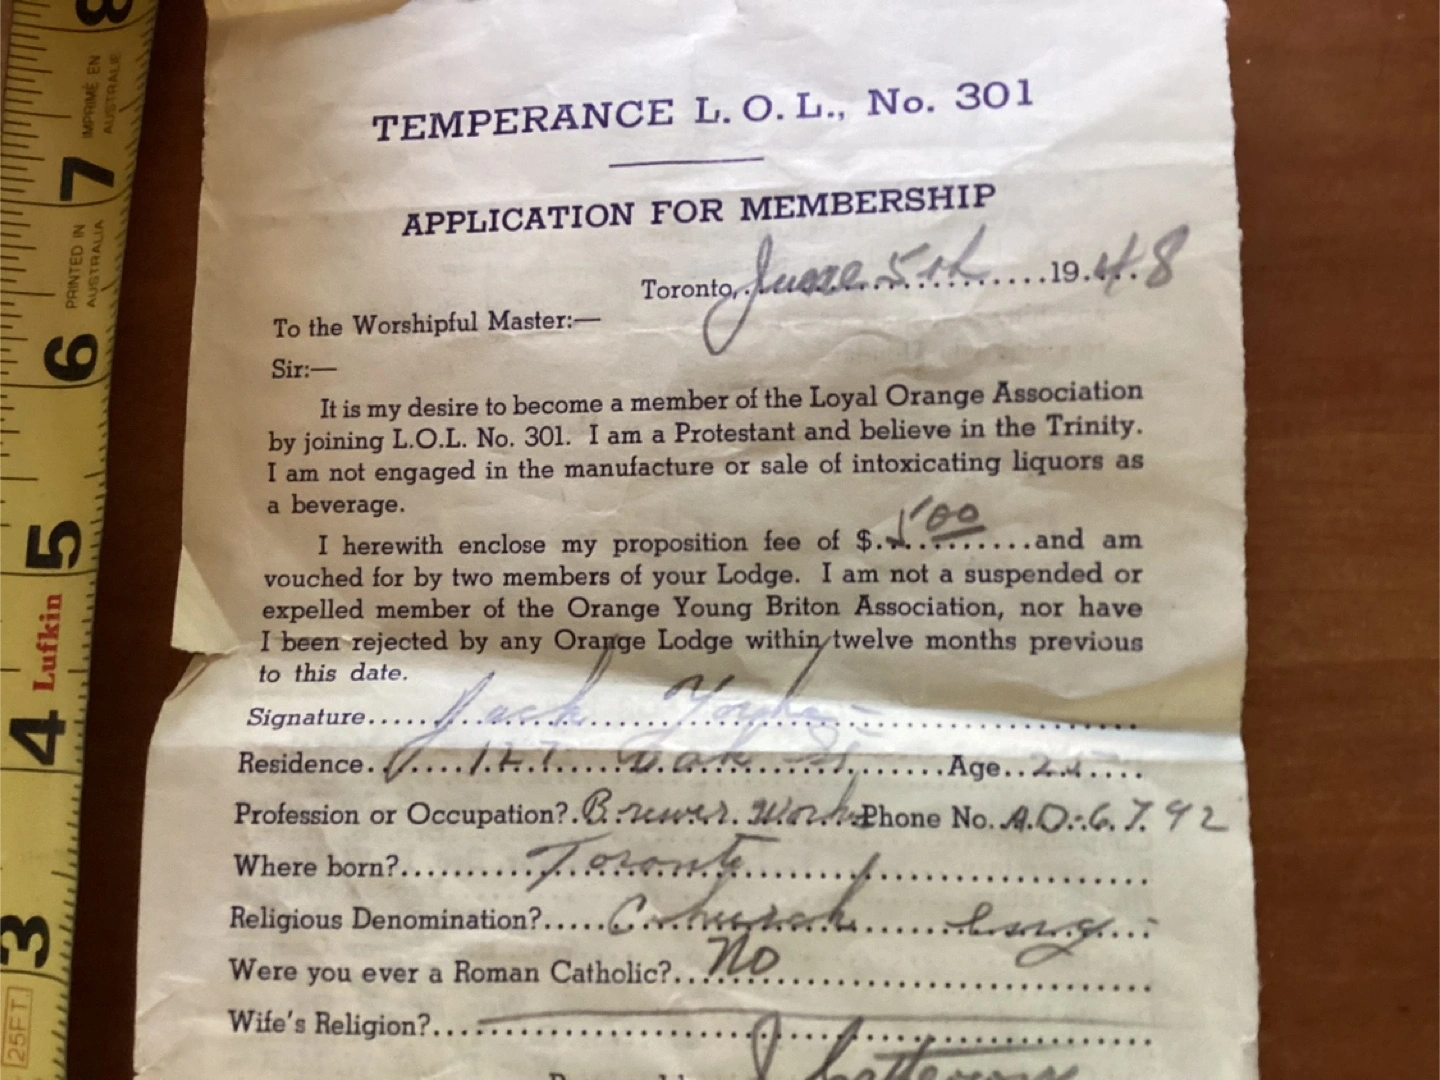 TEMPERANCE L. O. L., No. 301
APPLICATION FOR MEMBERSHIP
Toronto, June 5th 1948
To the Worshipful Master:—
Sir:—
It is my desire to become a member of the Loyal Orange Association
by joining L.O.L. No. 301. I am a Protestant and believe in the Trinity.
I am not engaged in the manufacture or sale of intoxicating liquors as
a beverage.
I herewith enclose my proposition fee of $ 5 00 and am
vouched for by two members of your Lodge. I am not a suspended or
expelled member of the Orange Young Briton Association, nor have
I been rejected by any Orange Lodge within twelve months previous
to this date.
Signature Jack
Residence 127 Oak St Age
Profession or Occupation? Brewer. Work Phone No. A.D. 6792
Where born? Toronto
Religious Denomination? Church Eng.
Were you ever a Roman Catholic? No
Wife's Religion?
8
IMPRIMÉ EN
AUSTRALIE
7
PRINTED IN
AUSTRALIA
6
5
Lufkin
4
3
25FT.